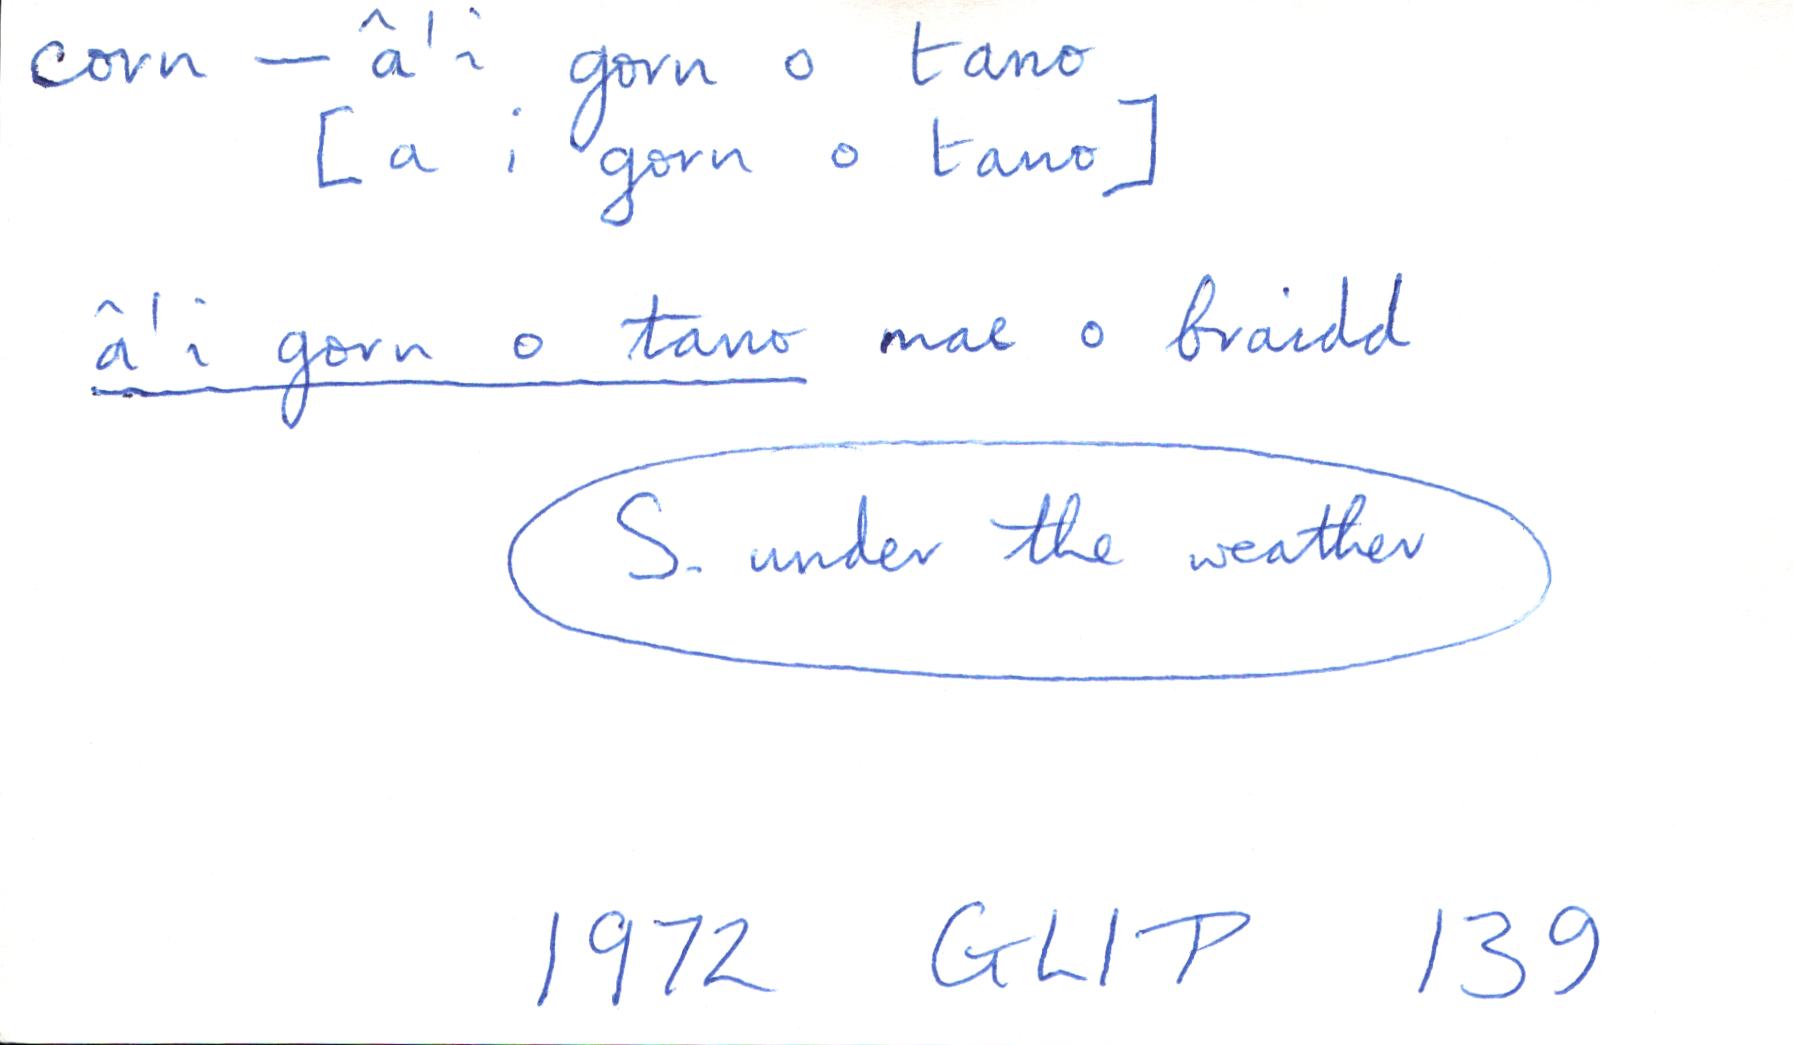 corn — â'i gorn o tano
[a i gorn o tano]
â'i gorn o tano mae o braidd
S. under the weather
1972 GLIT 139